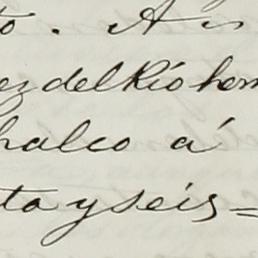 to. A is
ez del Río hem
halco á
ta y seis =